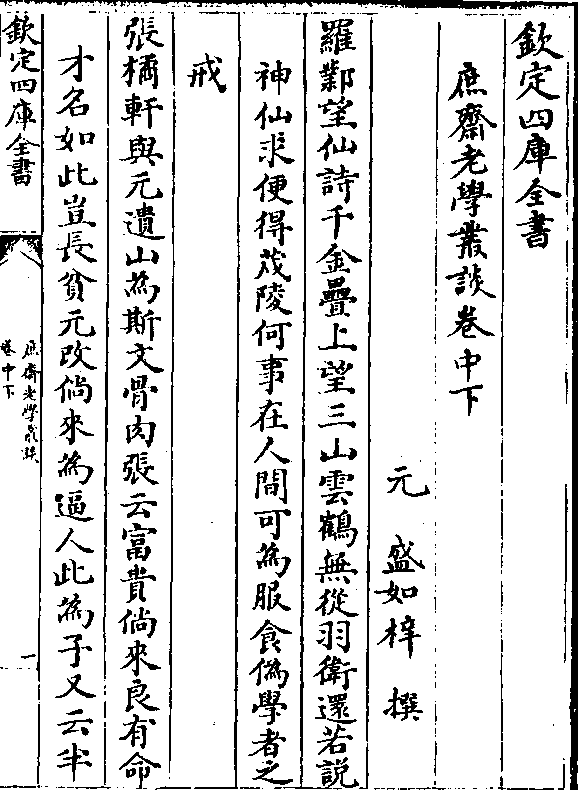 欽定四庫全書
庶齋老學叢談卷中下
元　盛如梓　撰
羅鄴望仙詩千金疊上望三山雲鶴無從羽衛還若説
神仙求便得茂陵何事在人間可為服食偽學者之
戒
張橘軒與元遺山為斯文骨肉張云富貴倘來良有命
才名如此豈長貧元改倘來為逼人此為子又云半
欽定四庫全書
庶齋老學叢談
卷中下
一